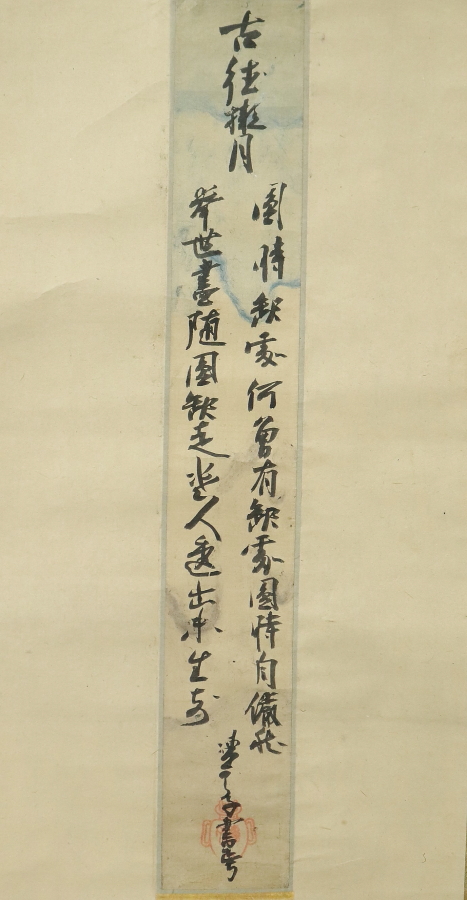 古月
圓時缺處何曾有缺處圓時自儼然
擧世盡随圓缺走人透出未生前
書